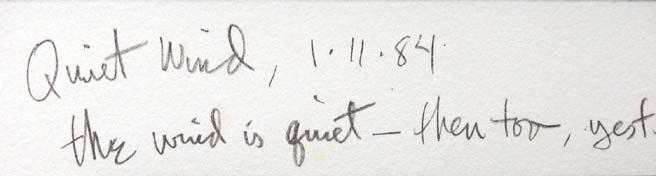 Quiet Wind, 1.11.84
the wind is quiet — then too, yest.